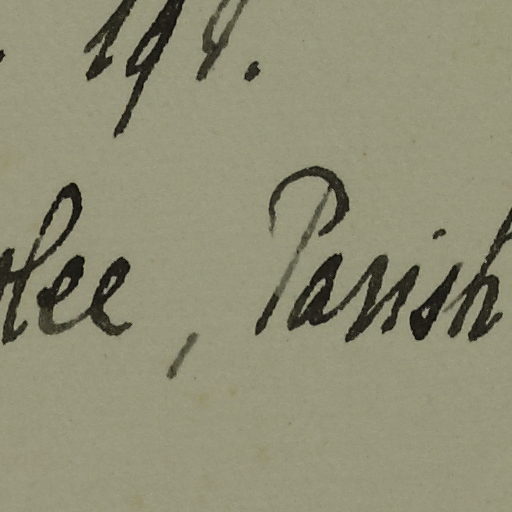 198.
lee, Parish